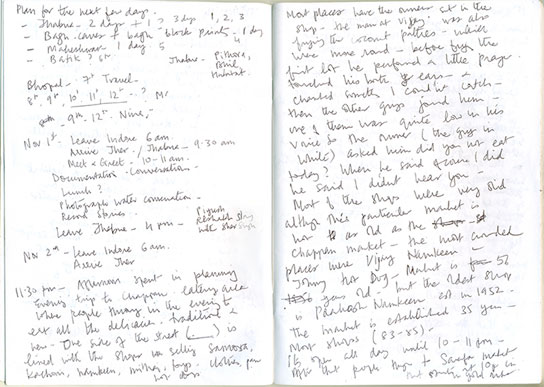 Plan for the next few days.
- Jhabua - 2 days + 1 3 days 1, 2, 3
- Bagh caves + bagh - block prints - 1 day
- Maheshwar 1 day 5
- Batik ? Jhabua - Pithora,
Bhil,
Bhopal - 7th Travel.
8th 9th 10th 11th 12th - ?
9th - 12th -
Nov 1st - Leave Indore 6 am.
Arrive Jher / Jhabua - 9.30 am
Meet & Greet - 10-11 am.
Documentation - Conversations -
Lunch ?
Photographs water conservation -
Record Stories
Leave Jhabua - 4 pm -
Nov 2nd - Leave Indore 6 am.
Arrive Jher
11:30 pm - Afternoon spent in planning
Evening trip to Chappan, eating area
where people throng in the evening to
eat all the delicacies, traditional &
new - One side of the street is
lined with the shops selling Samosa,
Kachori, namkeen, mithai,
hot dogs
Most places have the owners sit in the
shop - the man at Vijay was also
frying the coconut patties - which
were mine and - before frying the
first lot he performed a little prayer
touched his both ears &
chanted something I couldn't catch -
then the other guys found him -
one of them was quite low in his
voice so the owner (the guy in
white) asked him did you not eat
today? When he said ofcourse I did
he said I didn't hear you -
Most of the shops were very old
although this particular market is
not as old as the
Chappan market - the most crowded
places were Vijay Namkeen -
Johny Hot Dog - Market is 56
years old - but the oldest shop
is Namkeen est in 1952.
The market is established 35 years -
Most shops (83-85) -
Its open all day until 10-11 pm -
After that people throng to Sarafa market